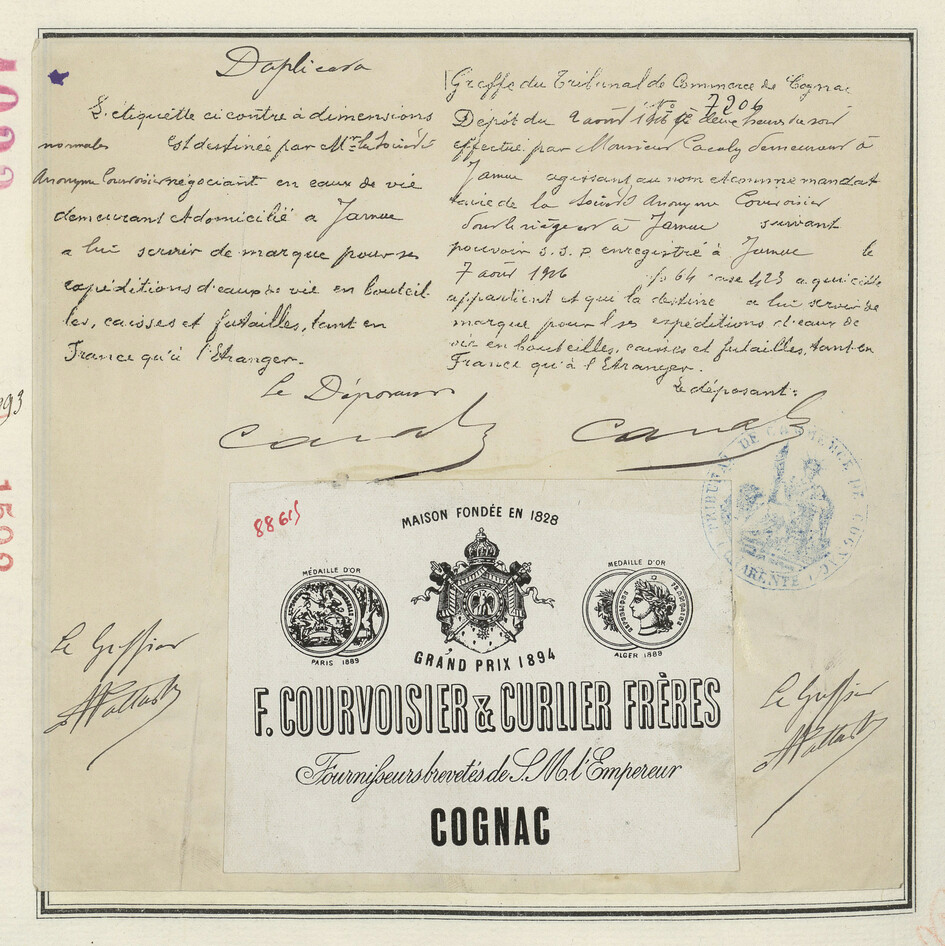 Duplicata
L'étiquette ci contre à dimensions
normales est destinée par Mr la Société
Anonyme Courvoisier négociant en eaux de vie
demeurant et domicilié a Jarnac
a lui servir de marque pour ses
expéditions d'eaux de vie en bouteil-
les, caisses et futailles, tant en
France qu'à l'Etranger.
Greffe du Tribunal de Commerce de Cognac
No 7206
Dépôt du 2 août 1926 à deux heures du soir
effectué par Monsieur demeurant à
Jarnac agissant au nom et comme mandat
taire de la Société Anonyme Courvoisier
dont le siège est à Jarnac suivant
pouvoir S.S.P. enregistré à Jarnac le
7 août 1926 fo 64 case 423 a qui elle
appartient et qui la destine a lui servir de
marque pour ses expéditions d'eaux de
vie en bouteilles, caisses et futailles, tant en
France qu'à l'Etranger.
Le Déposant
Le déposant:
TRIBUNAL DE COMMERCE DE COGNAC
CHARENTE
8865
MAISON FONDÉE EN 1828
MÉDAILLE D'OR
PARIS 1889
GRAND PRIX 1894
MÉDAILLE D'OR
RÉPUBLIQUE FRANÇAISE
ALGER 1889
F. COURVOISIER & CURLIER FRÈRES
Fournisseurs brevetés de S. M. l'Empereur
COGNAC
Le Greffier
Le Greffier